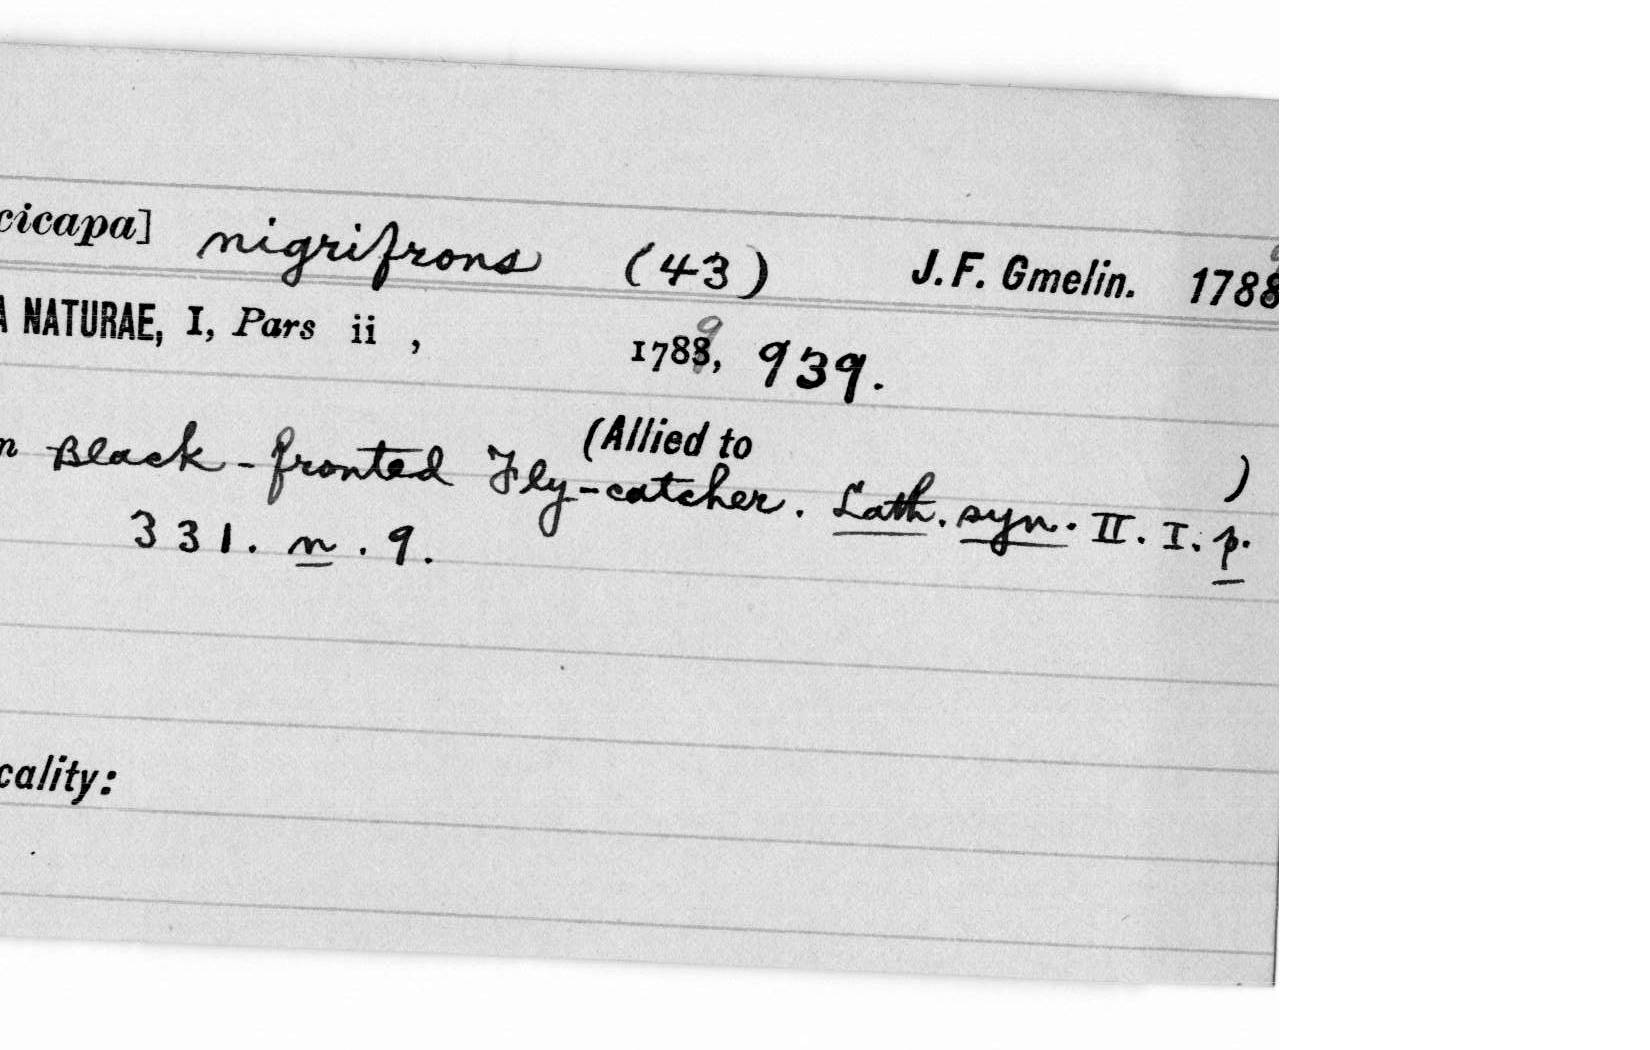 cicapa] nigrifrons (43) J. F. Gmelin. 1788
A NATURAE, I, Pars ii , 1789, 939.
(Allied to )
n Black-fronted Fly-catcher. Lath. syn. II. I. p.
331. n. 9.
cality: